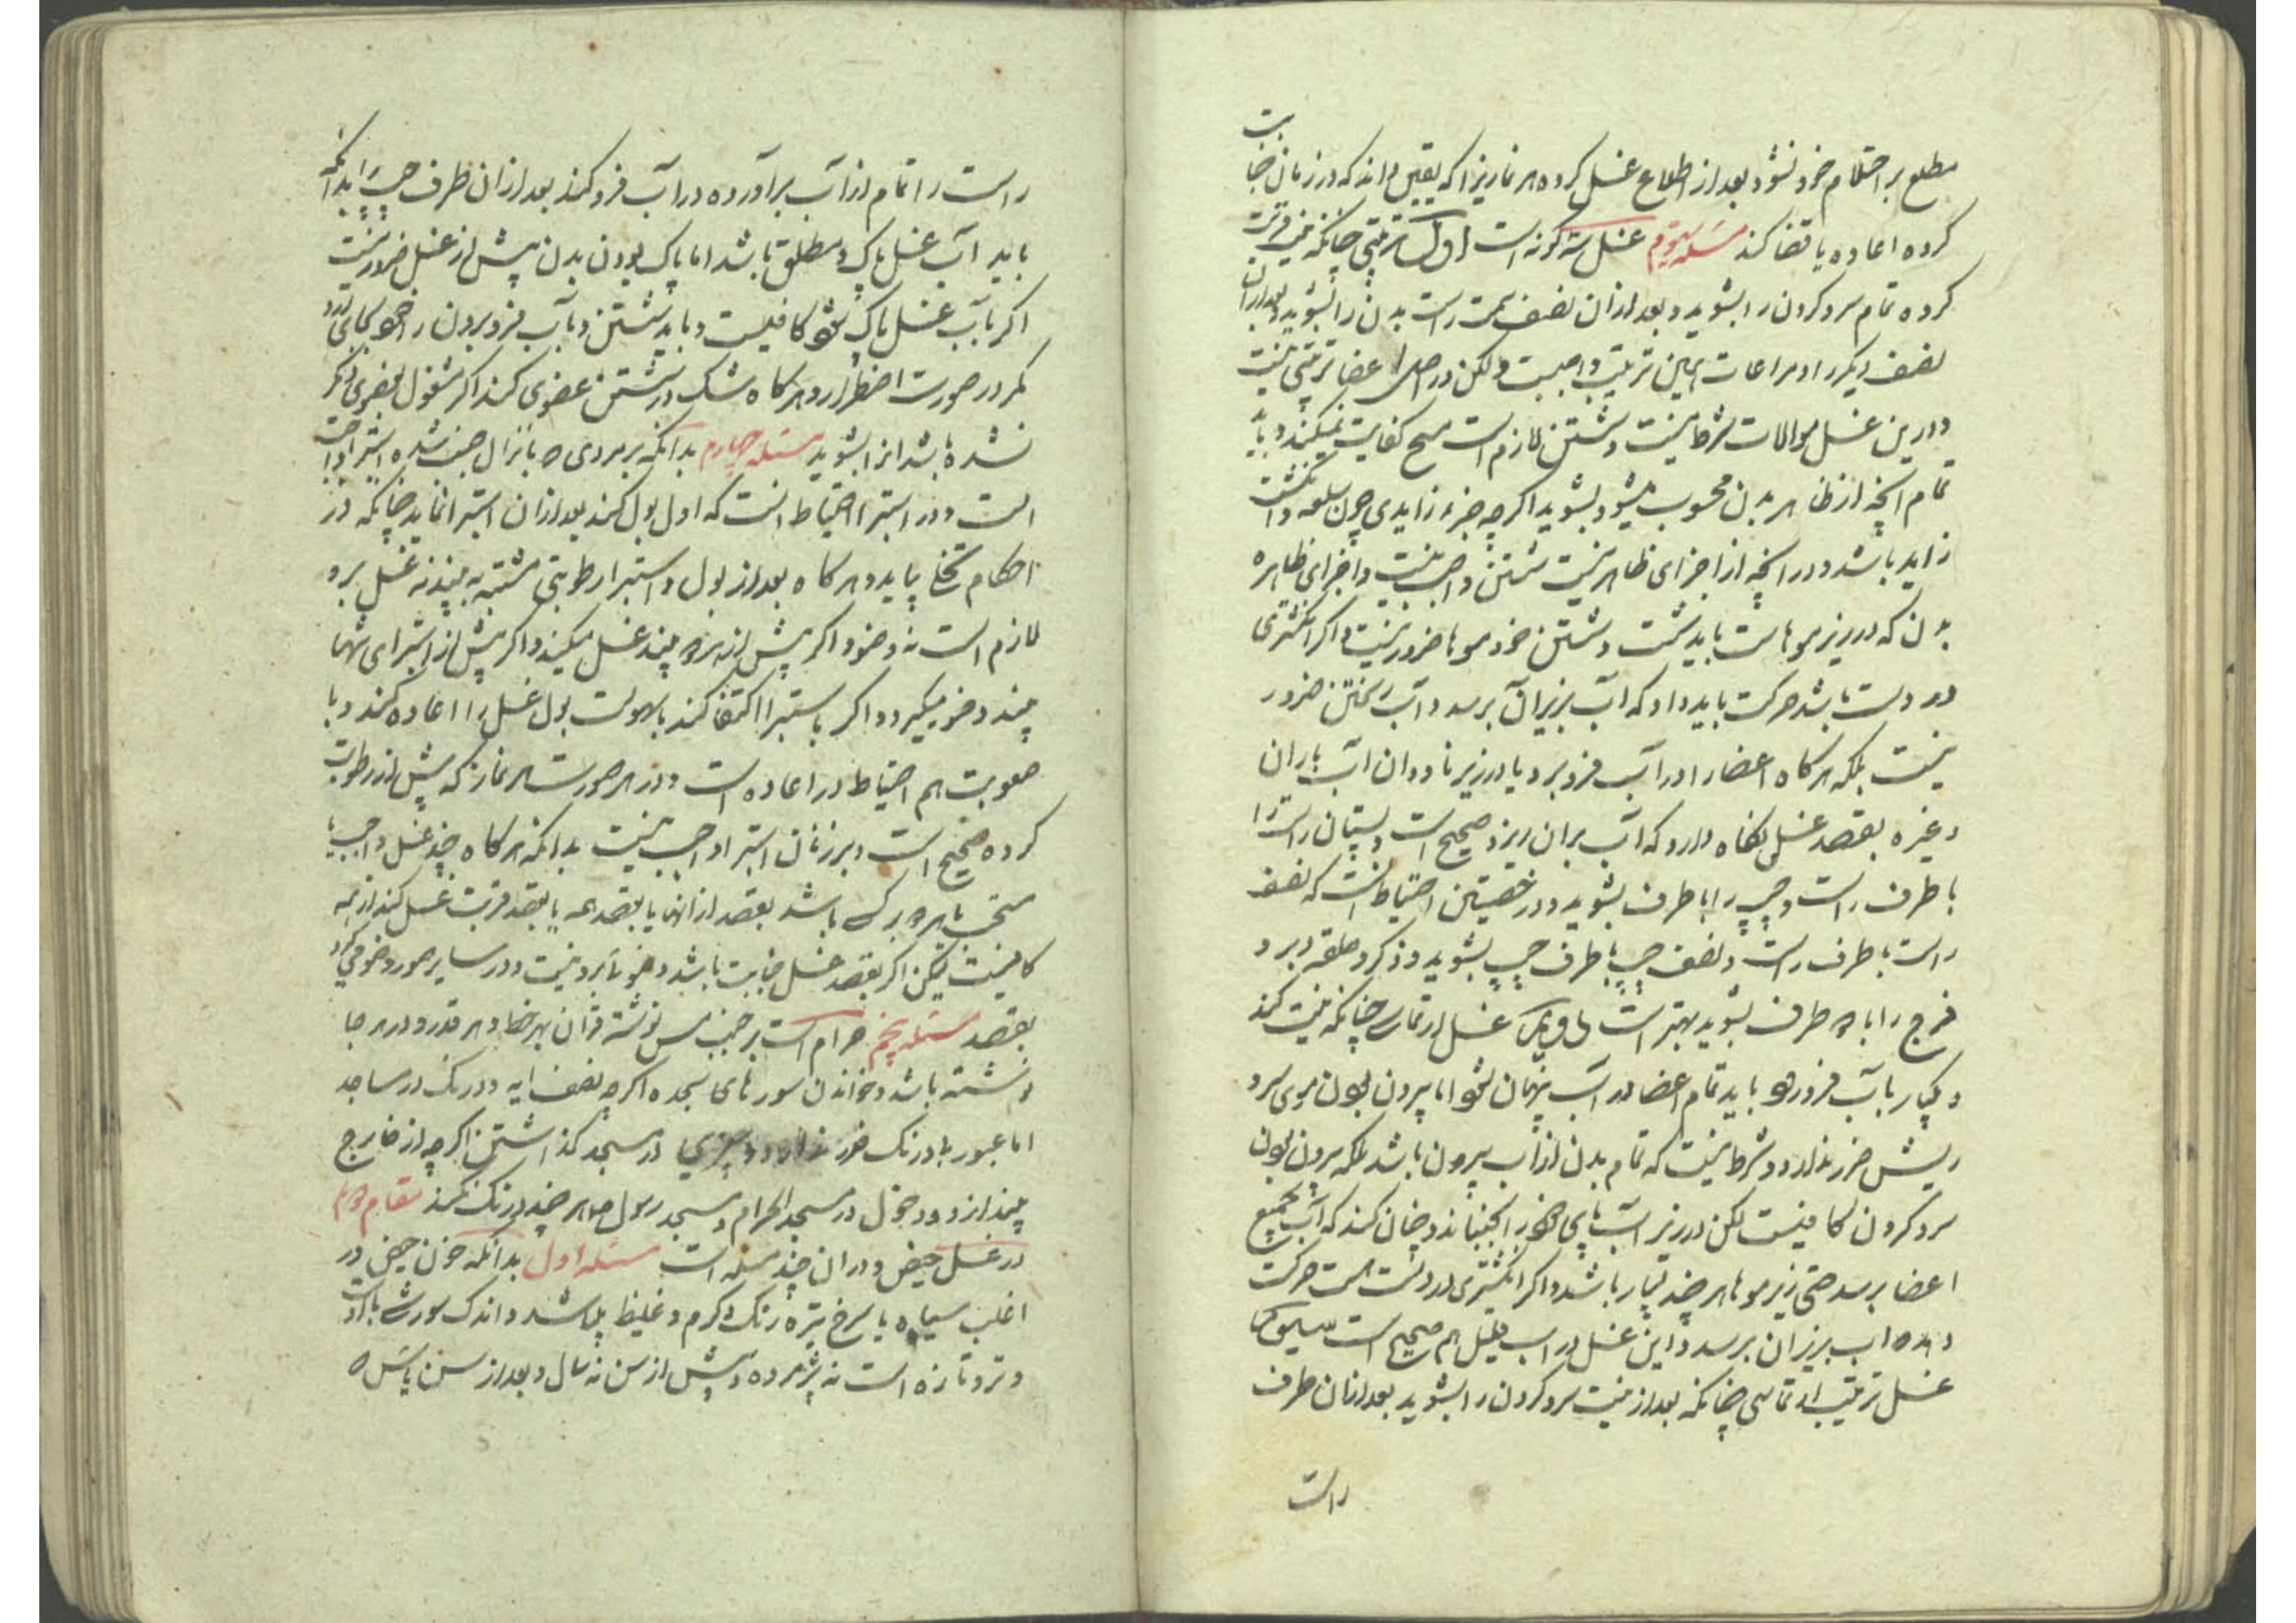 مطلع بر احتلام خود نشود بعد از اطلاع غسل کرده هر نمازیرا که یقین داند که در زمان جنابت
کرده اعاده یا قضا کند مسئله سوم غسل سه گونه است اول ترتیبی چنانکه نیت قربت
کرده تمام سر و کردن را بشوید و بعد از ان نصف سمت راست بدن را بشوید و بعد از ان
نصف دیکر را و مراعات همین ترتیب واجبست ولکن در اصل اعضا ترتیبی نیست
و درین غسل موالات شرط نیست و شستن لازم است مسح کفایت نمیکند و باید
تمام انچه از ظاهر بدن محسوب میشود بشوید اکر چه جزء زایدی چون سلعه و انکشت
زاید باشد و در انچه از اجزای ظاهر نیست شستن واجب نیست و اجزای ظاهره
بدن که در زیر موهاست باید شست و شستن خود موها ضرور نیست و اکر انکشتری
در دست باشد حرکت باید داد که آب بزیر آن برسد و آب ریختن ضرور
نیست بلکه هر کاه اعضا را در آب فرو برد یا در زیر ناودان آب باران
و غیره بقصد غسل نکاه دارد که آب بران ریزد صحیح است و پستان راست را
با طرف راست و چپ را با طرف بشوید و در خصیتین احتیاط انست که نصف
راست با طرف راست و نصف چپ با طرف چپ بشوید و ذکر و حلقه دبر و
فرج را با هر طرف بشوید بهتر است غسل ارتماسی چنانکه نیت کند
و یکبار بآب فرو رود باید تمام اعضا در آب پنهان شود اما بیرون بودن موی سر و
ریش ضرر ندارد و شرط نیست که تمام بدن از آب بیرون باشد بلکه بیرون بودن
سر و کردن کافیست لکن در زیر آب پای خود را بجنباند و چنان کند که آب بجمیع
اعضا برسد حتی زیر موها هر چند بسیار باشد و اکر انکشتری در دست است حرکت
دهد که اب بزیر ان برسد و این غسل در اب قلیل هم صحیح است سیوم
غسل ترتیب ارتماسی چنانکه بعد از نیت سر و کردن را بشوید بعد از ان طرف
راست
راست را تمام از آب برآورده در آب فرو کند بعد از ان طرف چپ را بدانکه
باید آب غسل پاک و مطلق باشد اما پاک بودن بدن پیش از غسل ضرور نیست
اکر بآب غسل پاک شود کافیست و باید شستن و بآب فرو بردن را خود بجای آورد
مکر در صورت اضطرار و هر کاه شک در شستن عضوی کند اکر مشغول بعضوی دیکر
نشده باشد انرا بشوید مسئله چهارم بدانکه بر مردی که بانزال جنب شده استبرا واجب
است و در استبرا احتیاط انست که اول بول کند بعد از ان استبرا نماید چنانکه در
احکام تخلی بیاید و هر کاه بعد از بول و استبرا رطوبتی مشتبه به بیند نه غسل برو
لازم است نه وضو و اکر پیش از هر دو بیند غسل میکند و اکر پیش از استبرای تنها
بیند وضو میکیرد و اکر باستبرا اکتفا کند بسهولت بول غسل را اعاده کند و با
صعوبت هم احتیاط در اعاده است و در هر صورت هر نماز که پیش از رطوبت
کرده صحیح است و بر زنان استبرا واجب نیست بدانکه هر کاه چند غسل واجب یا
سنتی یا هر دو بر کسی باشد بقصد از انها یا بقصد همه یا بقصد قربت غسل کند از همه
کافیست لیکن اکر بقصد غسل جنابت باشد وضو بآن برو نیست و در سایر صور وضو میکیرد
بقصد مسئله پنجم حرام است بر جنب مس نوشته قرآن بهر خط و هر قدر و در هر جا
نوشته باشد و خواندن سورهای سجده اکر چه نصف ایه و درنک در مساجد
اما عبور بلا درنک ضرر ندارد و چیزی در مسجد کذاشتن اکر چه از خارج
بیندازد و دخول در مسجد الحرام و مسجد رسول هر چند درنک نکند مقام دوم
در غسل حیض و در ان چند مسئله است مسئله اول بدانکه خون حیض در
اغلب سیاه یا سرخ تیره رنک و کرم و غلیظ میباشد و اندک سوزشی با اوست
و تر و تازه است نه پژمرده و پیش از سن نه سال و بعد از سن یاس که